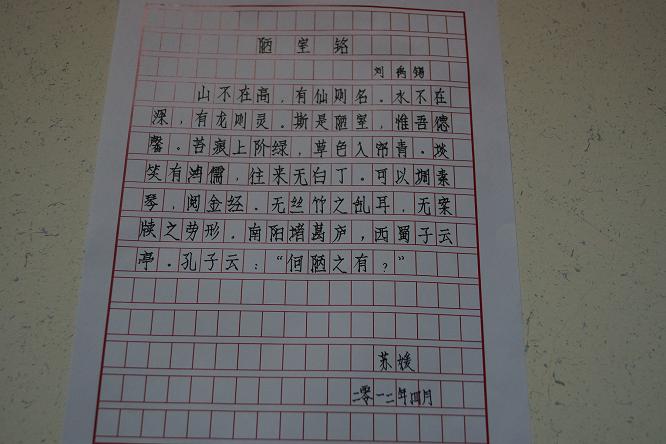 陋室铭
刘禹锡
山不在高，有仙则名。水不在
深，有龙则灵。斯是陋室，惟吾德
馨。苔痕上阶绿，草色入帘青。谈
笑有鸿儒，往来无白丁。可以调素
琴，阅金经。无丝竹之乱耳，无案
牍之劳形。南阳诸葛庐，西蜀子云
亭。孔子云：“何陋之有？”
苏媛
二零一二年四月